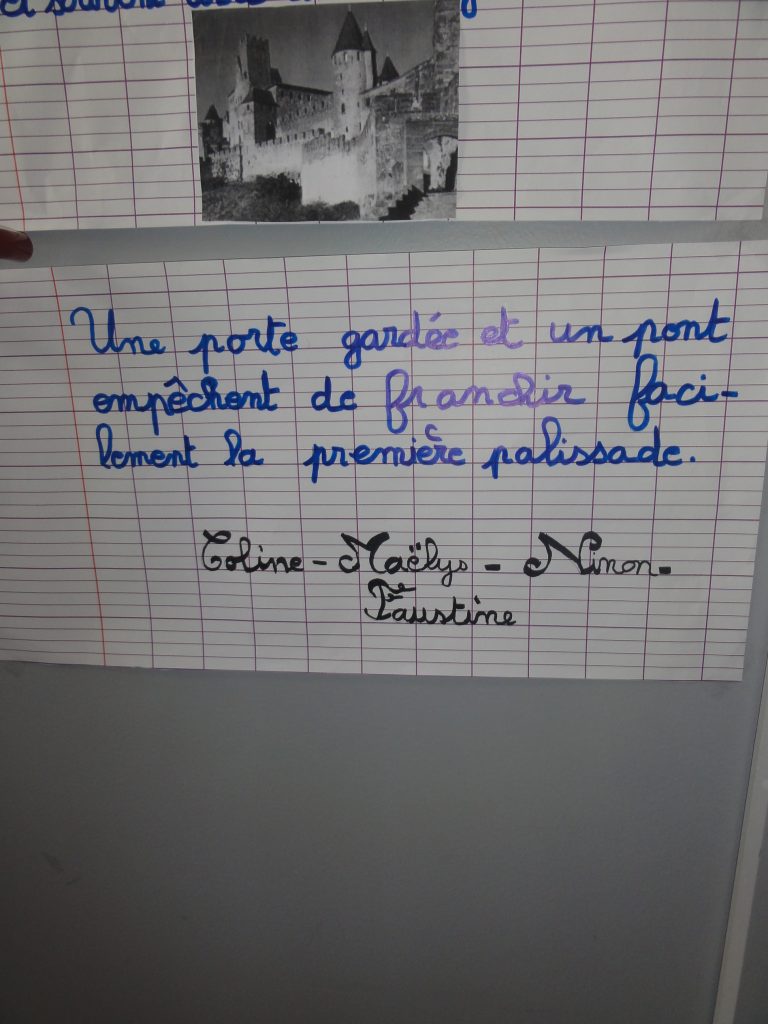 Une porte gardée et un pont
empêchent de franchir faci-
lement la première palissade.
Coline - Maëlys - Ninon -
Faustine